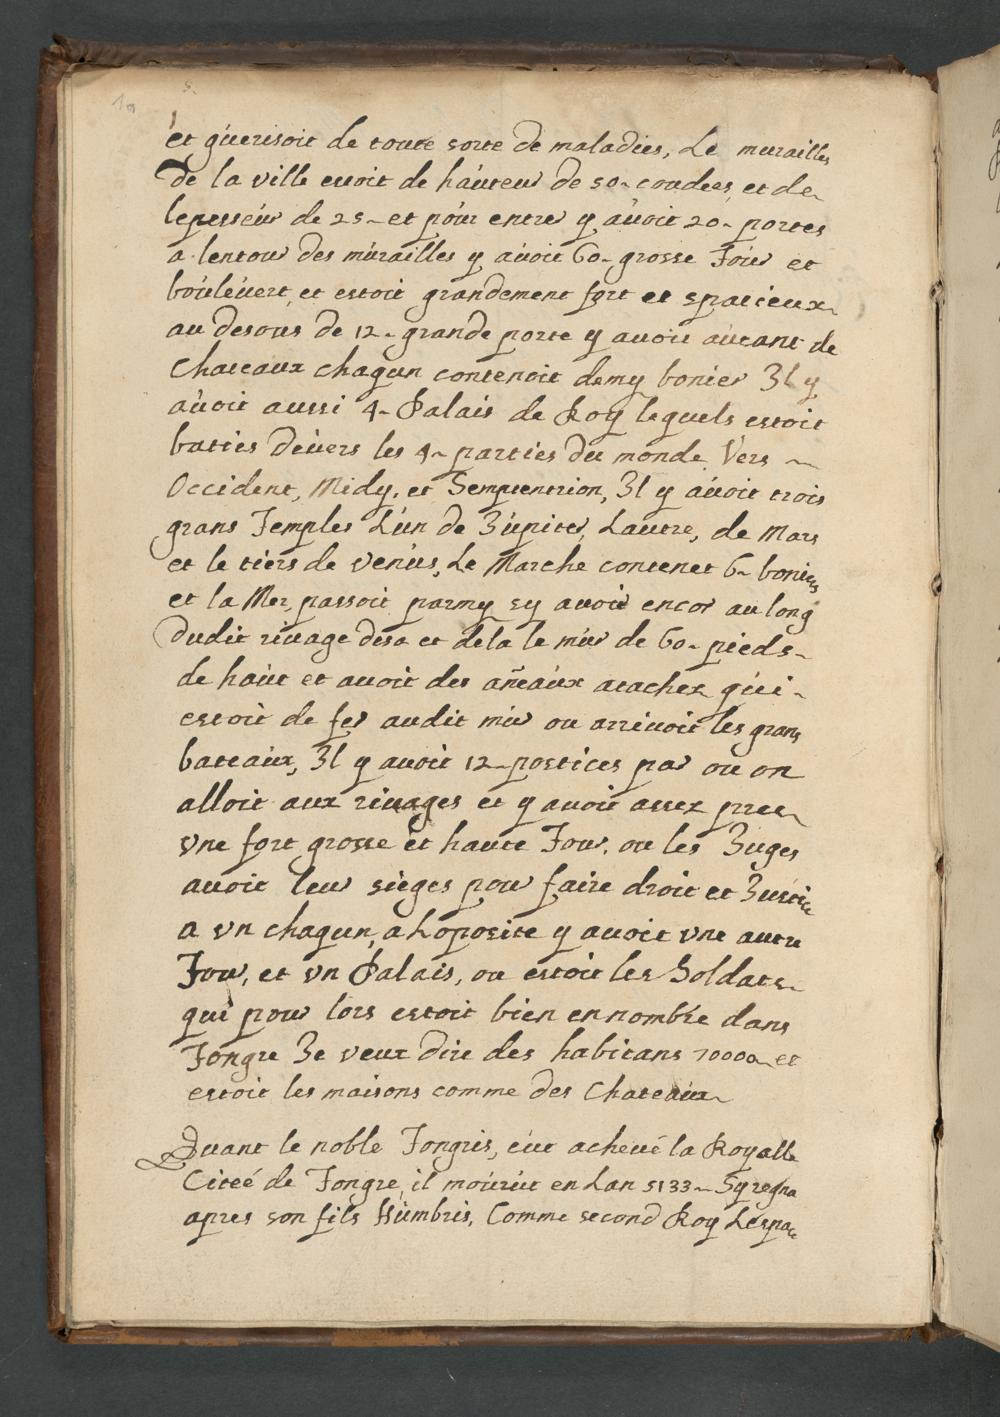 et guerisoit de toute sorte de maladies, Le murailles
de la ville estoit de hauteur de 50 coudees, et de
lepesseur de 25 et pour entrer y avoit 20 portes
a lentour des murailles y avoit 60 grosse Tour et
boulevert, et estoit grandement fort et spatieux
au desous de 12 grande porte y avoit autant de
Chateaux chaqun contenoit demy bonier Il y
avoit aussi 4 Palais de Roy lequels estoit
baties devers les 4 parties du monde Vers
Occident, Midy, et Semptentrion, Il y avoit trois
grans Temples L'un de Jupiter, Lautre, de Mars
et le tiers de Venus, Le Marche contenet 6 boniers
et la Mer, passoit parmy sy avoit encor au long
dudit rivage desa et dela le mur de 60 pieds
de haut et avoit des añeaux atachez qui
estoit de fer audit mur ou arrivoit les grans
bateaux, Il y avoit 12 postices par ou on
alloit aux rivages et y avoit assez pres
vne fort grosse et haute Tour, ou les Juges
avoit leur sieges pour faire droit et Justice
a vn chaqun, a Loposite y avoit vne autre
Tour, et vn Palais, ou estoit les Soldats
qui pour lors estoit bien en nombre dans
Tongre Je veux dire des habitans 70000 et
estoit les maisons comme des Chateaux
Quant le noble Tongris, eut achevé la Royalle
Citeé de Tongre, il mourut en Lan 5133 Sy regna
apres son fils Humbris, Comme second Roy Lespace